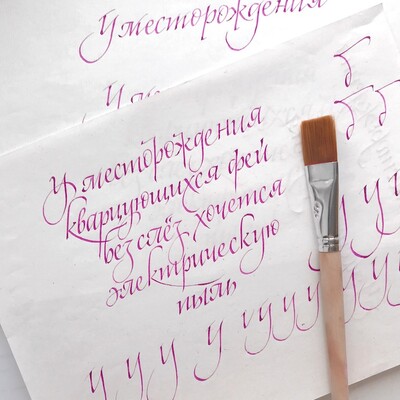 У месторождения
У месторождения
кварцующихся фей
без слёз хочется
электрическую
пыль
Б
Б Б